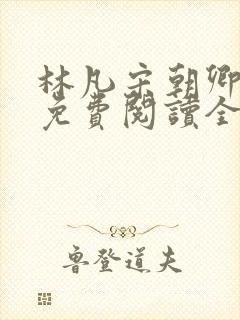 林凡宋朝卿
免費閱讀全
魯登道夫